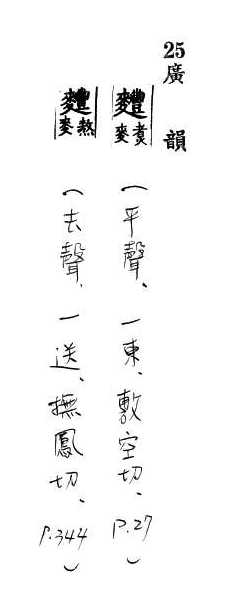 25廣韻
麷煮麥(平聲、一東、敷空切、P.27)
麷熬麥(去聲、一送、撫鳳切、P.344)